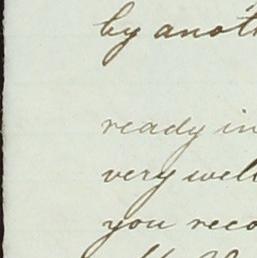 by anoth
ready in
very well
you reco